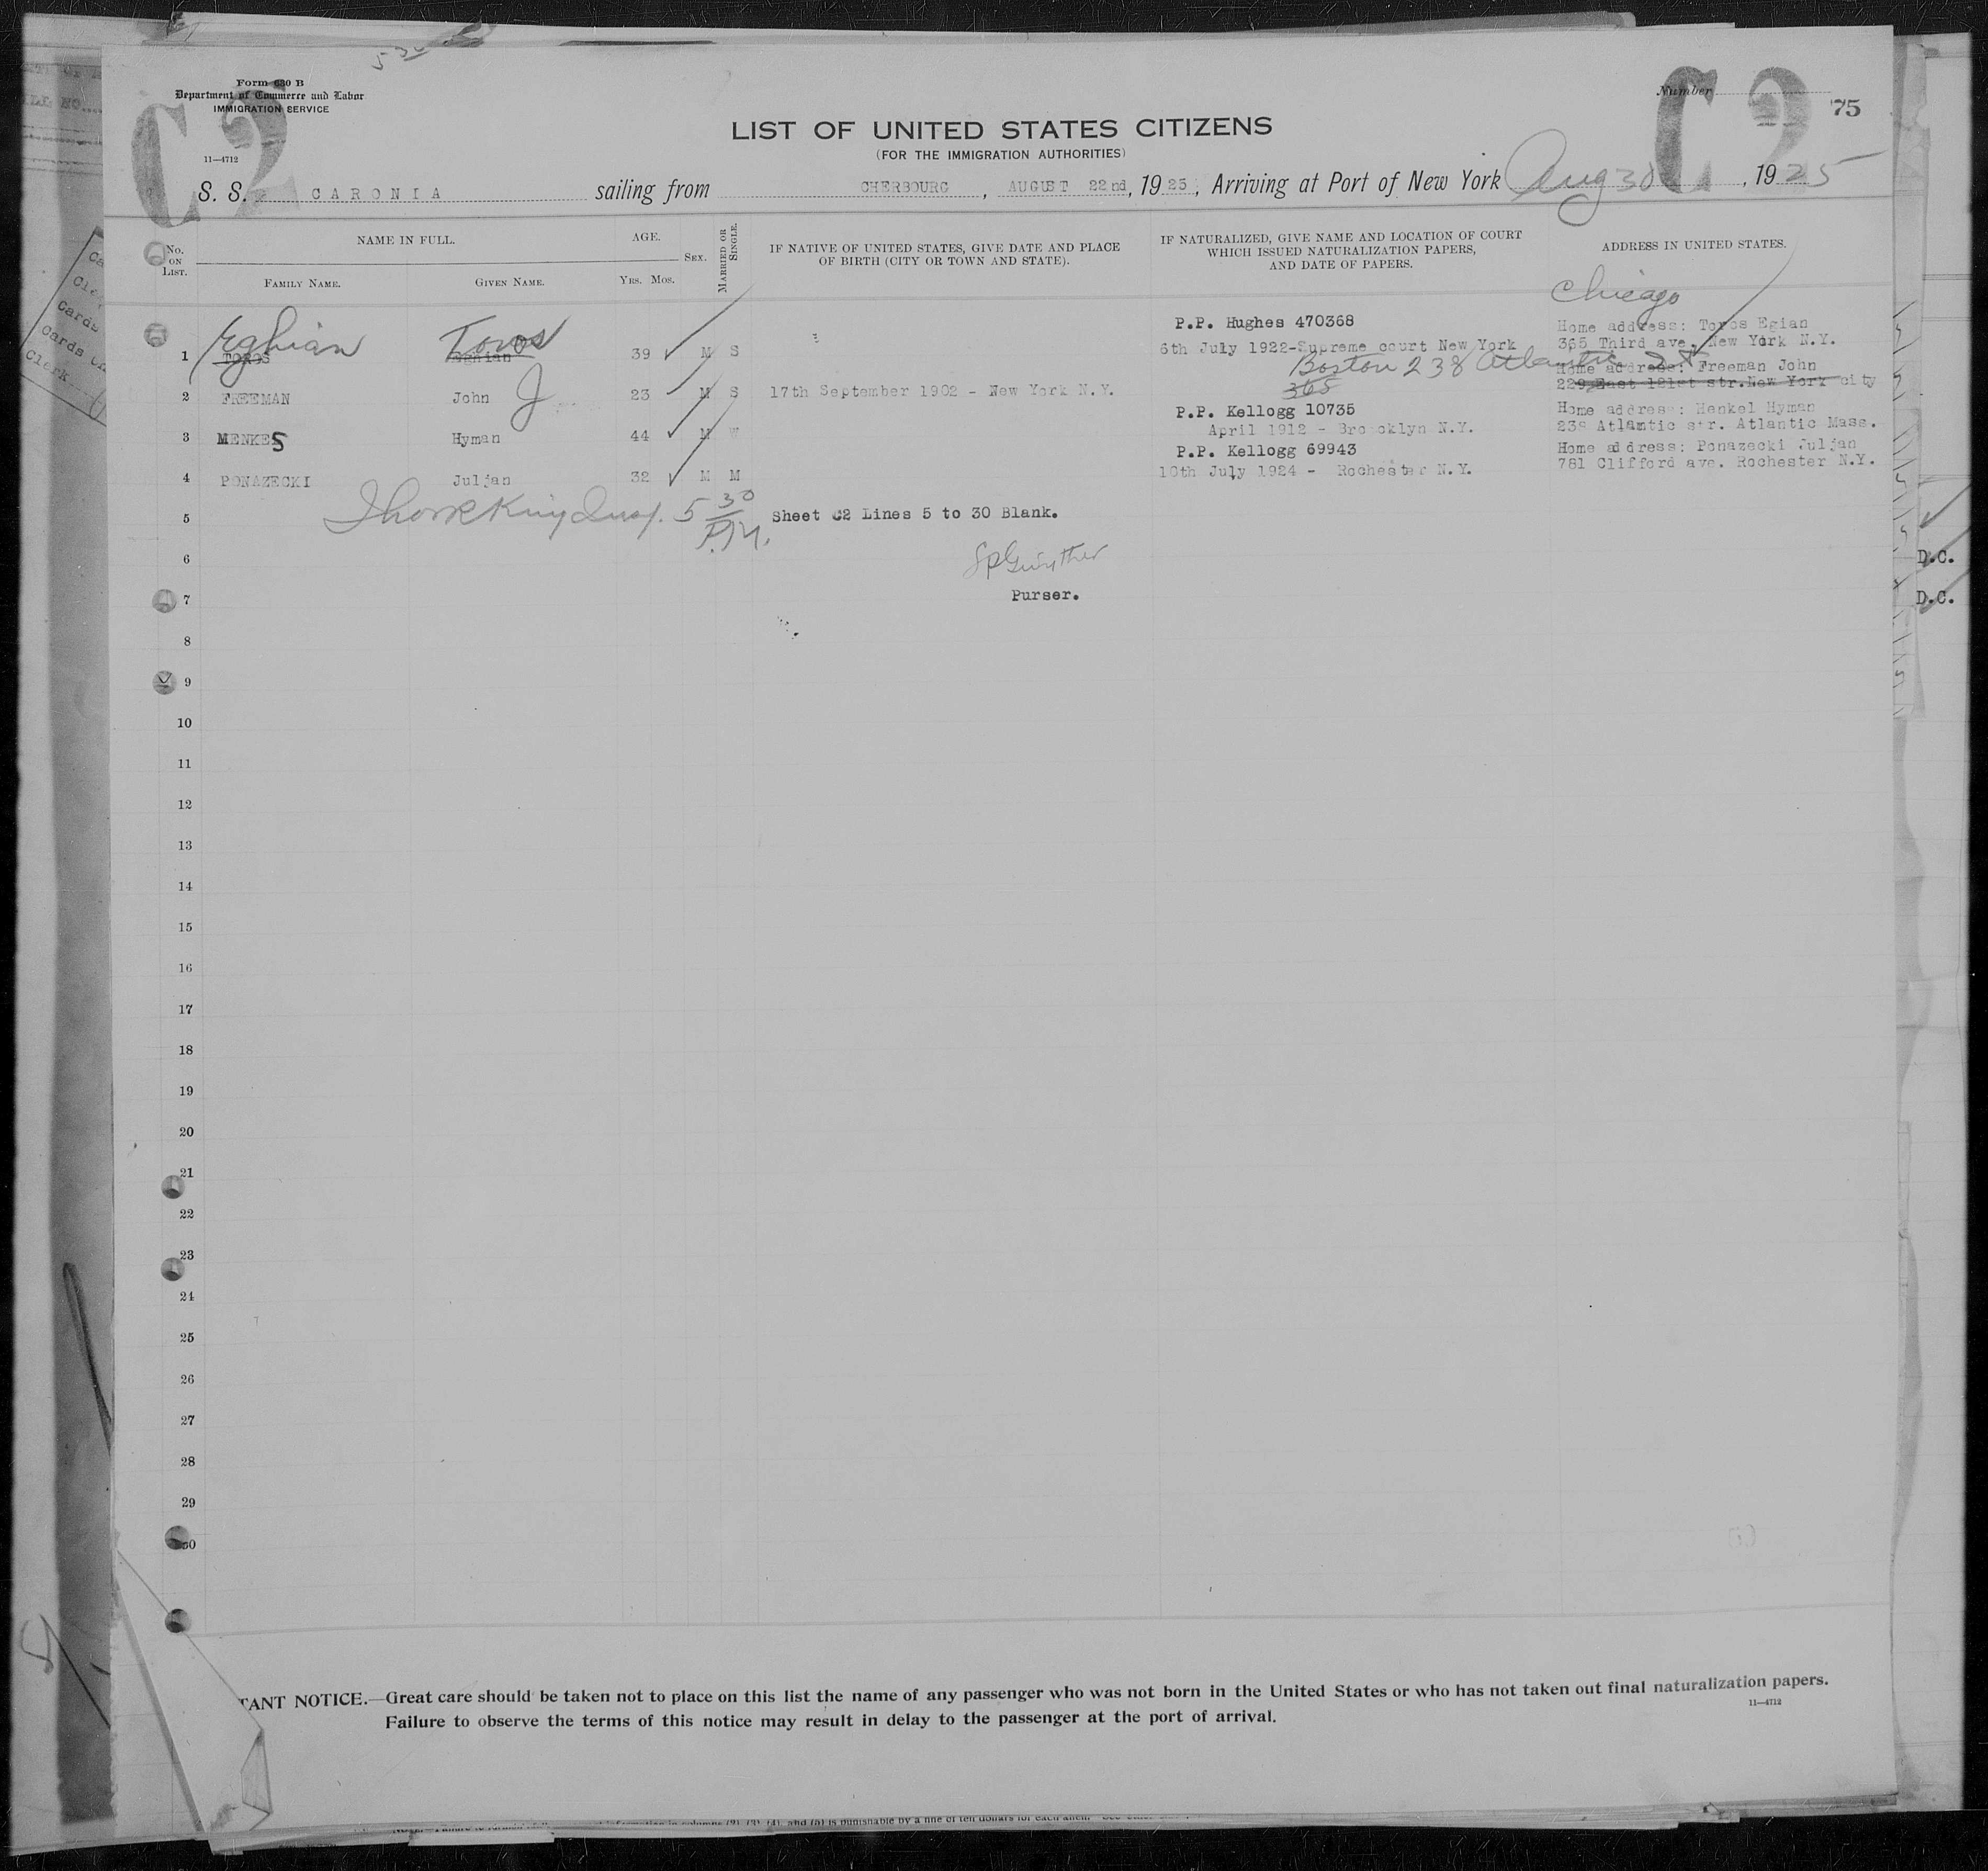 5 30
Form 630 B
Department of Commerce and Labor
IMMIGRATION SERVICE
C2
11—4712
Number
C2
75
LIST OF UNITED STATES CITIZENS
(FOR THE IMMIGRATION AUTHORITIES)
S. S. CARONIA sailing from CHERBOURG, AUGUST 22nd, 1925, Arriving at Port of New York Aug 30, 1925
No. ON LIST.
NAME IN FULL.
FAMILY NAME.
GIVEN NAME.
AGE.
YRS. MOS.
SEX.
MARRIED OR SINGLE.
IF NATIVE OF UNITED STATES, GIVE DATE AND PLACE
OF BIRTH (CITY OR TOWN AND STATE).
IF NATURALIZED, GIVE NAME AND LOCATION OF COURT
WHICH ISSUED NATURALIZATION PAPERS,
AND DATE OF PAPERS.
ADDRESS IN UNITED STATES.
Chicago
P.P. Hughes 470368
Home address: Toros Egian
Eghian Toros
1 TOROS Eghian 39 M S 6th July 1922-Supreme court New York 365 Third ave. New York N.Y.
Boston 238 Atlantic St
365
Home address: Freeman John
2 FREEMAN John J 23 M S 17th September 1902 - New York N.Y. 229 East 121st str. New York city
P.P. Kellogg 10735
Home address: Henkel Hyman
3 MENKES Hyman 44 M W April 1912 - Broocklyn N.Y. 238 Atlamtic str. Atlantic Mass.
P.P. Kellogg 69943
Home address: Ponazecki Juljan
4 PONAZECKI Juljan 32 M M 10th July 1924 - Rochester N.Y. 781 Clifford ave. Rochester N.Y.
5 King Insp. 5 30 P.M. Sheet C2 Lines 5 to 30 Blank.
6
D.C.
7 Purser.
D.C.
8
9
10
11
12
13
14
15
16
17
18
19
20
21
22
23
24
25
26
27
28
29
30
TANT NOTICE.—Great care should be taken not to place on this list the name of any passenger who was not born in the United States or who has not taken out final naturalization papers.
Failure to observe the terms of this notice may result in delay to the passenger at the port of arrival.
11—4712